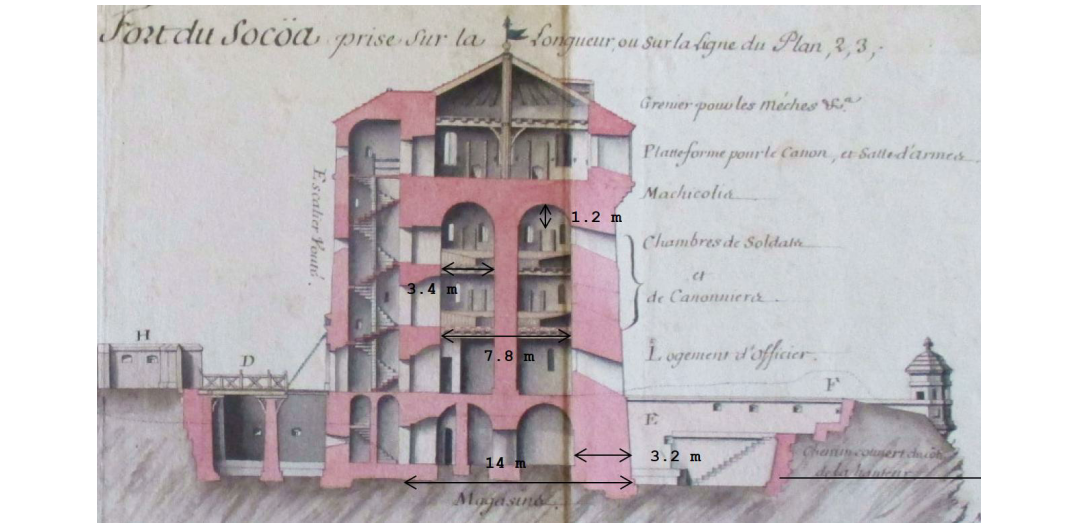 Fort du Socöa prise sur la Longueur, ou sur la ligne du Plan, 2, 3,
Grenier pour les méches &c.a
Platteforme pour le Canon, et Salle d'armes
Machicolis
1.2 m
Escalier Vouté.
Chambres de Soldats
et
de Canonniers.
3.4 m
7.8 m
Logement d'officier.
H
D
F
E
3.2 m
14 m
Chemin couvert du côté
de la hauteur
Magasins.